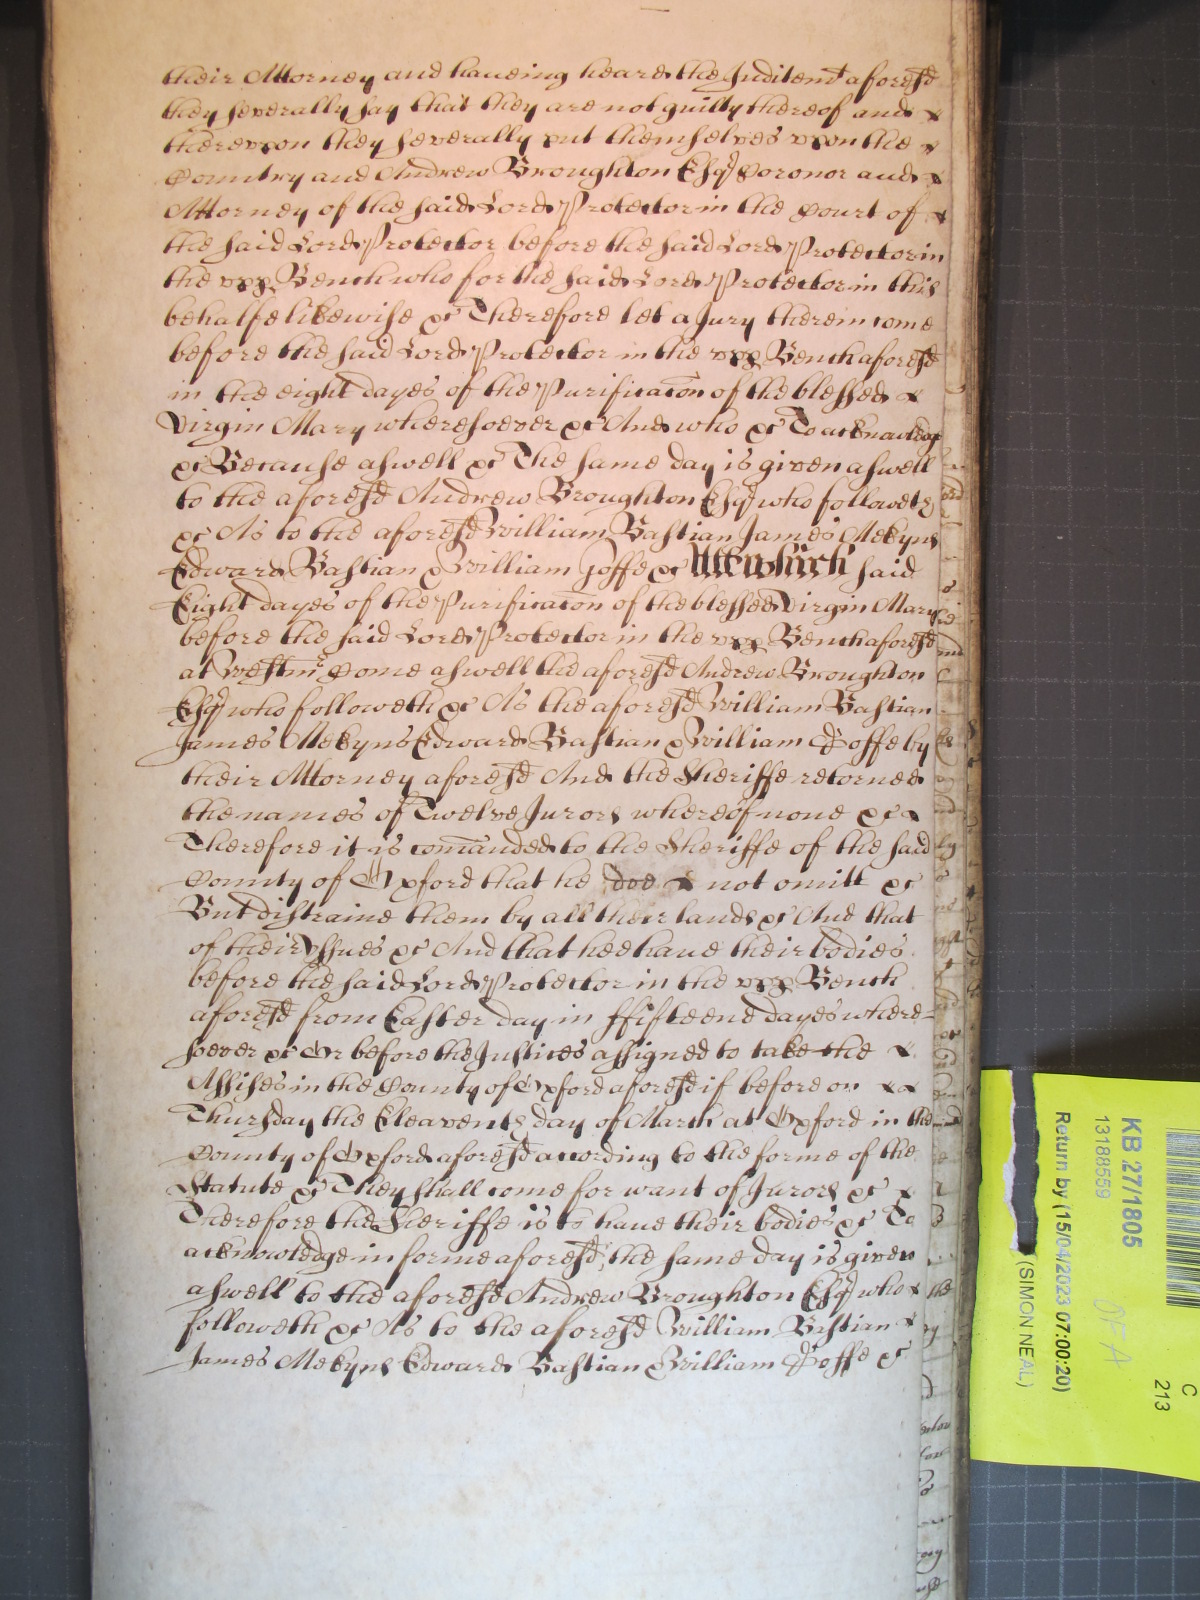 their Attorney and haueing heard the Inditemt aforesd
they severally say that they are not guilty thereof and x
therevpon they severally put themselves vpon the x
Country and Andrew Broughton Esqr Coronor and x
Attorney of the said Lord Protector in the Court of x
the said Lord Protector before the said Lord Protector in
the vpp Bench who for the said Lord Protector in this
behalfe likewise &c Therefore let a Jury therein come
before the said Lord Protector in the vpp Bench aforesd
in the eight dayes of the Purificacon of the blessed x
Virgin Mary wheresoever &c And who &c To acknowledg
&c Because aswell &c The same day is given aswell
to the aforesd Andrew Broughton Esqr who followeth
&c As to the aforesd William Bastian James Mekyns
Edward Bastian & William Joffe &c Att which said
Eight dayes of the Purificacon of the blessed Virgin Mary
before the said Lord Protector in the vpp Bench aforesd
at Westmr Come aswell the aforesd Andrew Broughton
Esqr who followeth &c As the aforesd William Bastian
James Mekyns Edward Bastian & William Joffe by
their Attorney aforesd And the Sheriffe retorned
the names of Twelve Jurors whereof none &c x
Therefore it is comanded to the Sheriffe of the said
County of Oxford that he doe x not omitt &c
But distraine them by all their lands &c And that
of their Yssues &c And that hee haue their bodies
before the said Lord Protector in the vpp Bench
aforesd from Easter day in ffifteene dayes where=
soever &c Or before the Justices assigned to take the x
Assises in the County of Oxford aforesd if before on x x
Thursday the Eleaventh day of March at Oxford in the
County of Oxford aforesd according to the forme of the
Statute &c They shall come for want of Jurors &c x
Therefore the Sheriffe is to haue their bodies &c To
acknowledge in forme aforesd, the same day is given
aswell to the aforesd Andrew Broughton Esqr who x
followeth &c As to the aforesd William Bastian x
James Mekyns Edward Bastian & William Joffe &c
KB 27/1805
13188559
Return by (15/04/2023 07:00:20)
(SIMON NEAL)
C
213